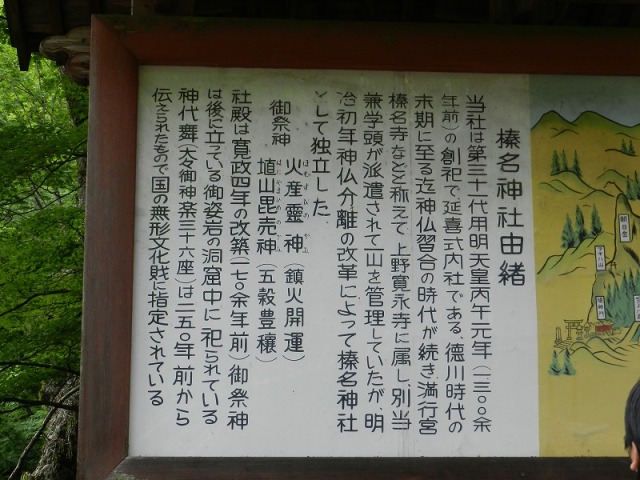 榛名神社由緒
当社は第三十一代用明天皇丙午元年(一三〇〇余
年前)の創祀で延喜式内社である 徳川時代の
末期に至る迄神仏習合の時代が続き満行宮
榛名寺などと称えて上野寛永寺に属し、別当
兼学頭が派遣されて一山を管理していたが、明
治初年神仏分離の改革によって榛名神社
として独立した
御祭神 火産霊神(鎮火開運)
埴山毘売神(五穀豊穣)
社殿は寛政四年の改築(一七〇余年前)御祭神
は後に立っている御姿岩の洞窟中に祀られている
神代舞(大々御神楽三十六座)は二五〇年前から
伝えられたもので国の無形文化財に指定されている
朝日岳